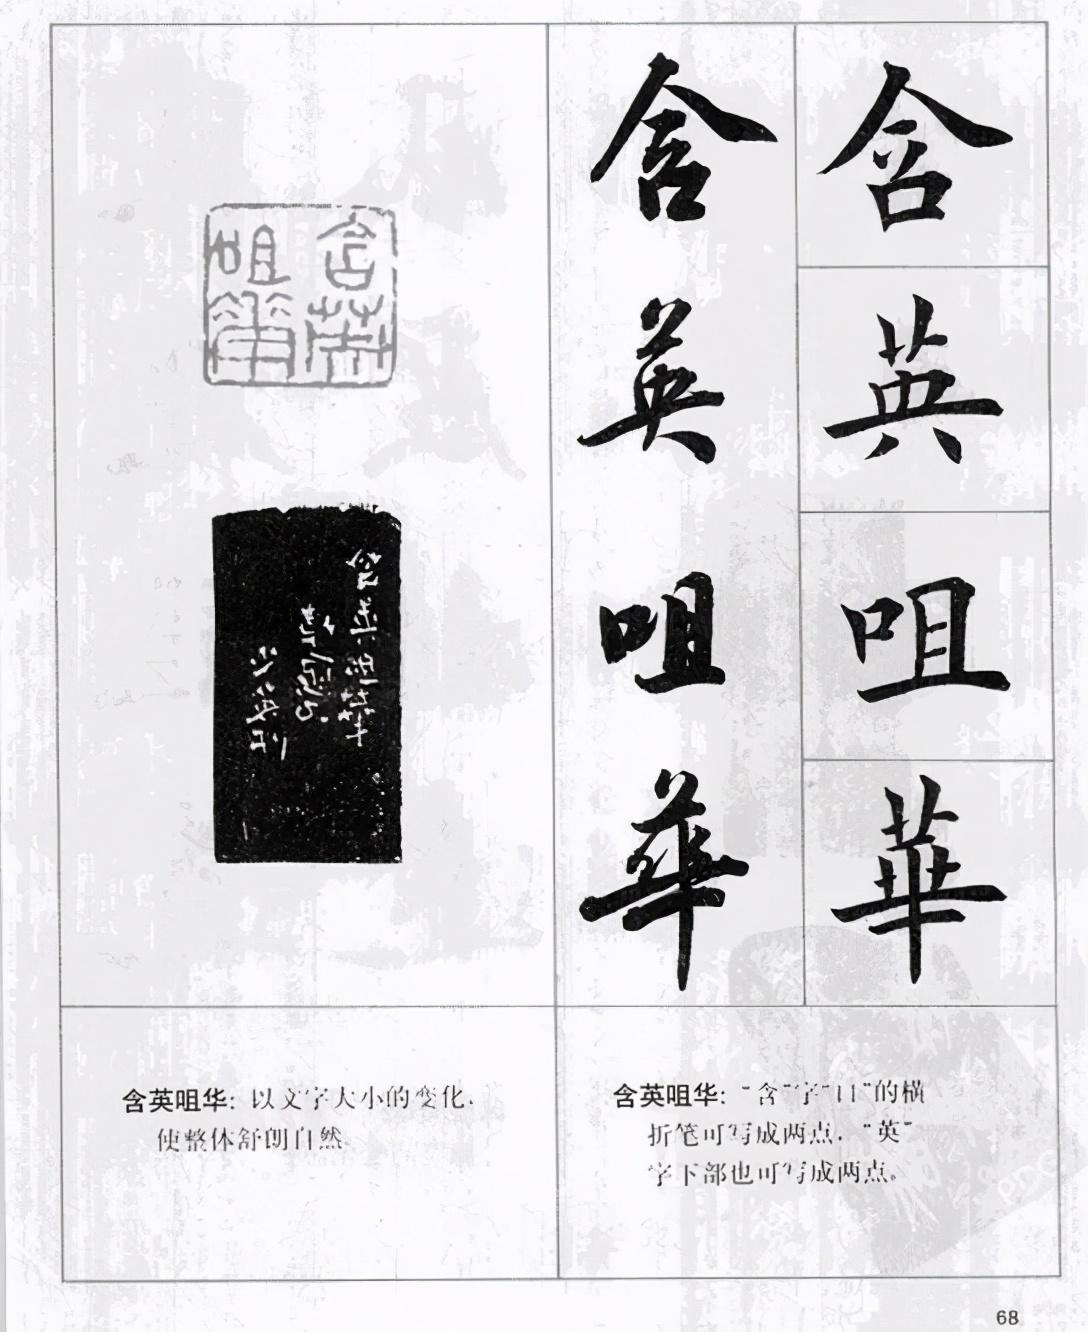 含英咀華
含英咀華
含英咀華
含英咀华：以文字大小的变化，
使整体舒朗自然。
含英咀华：“含”字“口”的横
折笔可写成两点，“英”
字下部也可写成两点。
68